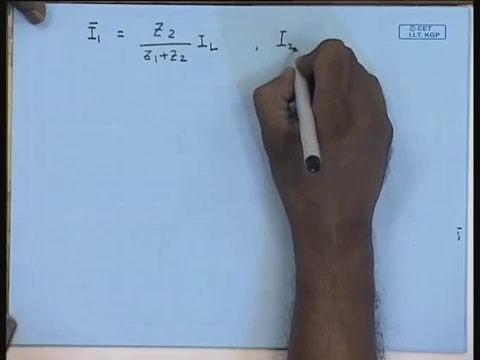 Ī₁ = Z₂ / (Z₁+Z₂) I_L , I₂
© CET
I.I.T. KGP